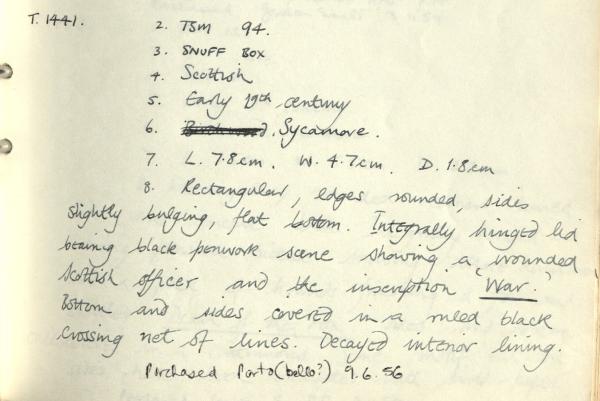 T. 1441. 2. TSM 94.
3. SNUFF BOX
4. Scottish
5. Early 19th century
6. Sycamore.
7. L. 7.8cm. W. 4.7cm. D. 1.8cm
8. Rectangular, edges rounded, sides
slightly bulging, flat bottom. Integrally hinged lid
bearing black penwork scene showing a wounded
Scottish officer and the inscription "War."
Bottom and sides covered in a ruled black
crossing net of lines. Decayed interior lining.
Purchased Porto(bello?) 9.6.56